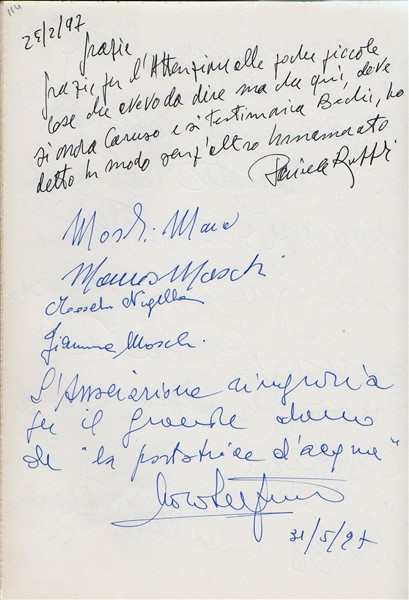 114
25/2/97
grazie
grazie per l'Attenzione alle poche piccole
cose che avevo da dire ma da qui, dove
si onora Caruso e si testimonia Bechi, ho
detto in modo senz'altro innamorato
Mosch. Mara
Marcos Moschi
Moschi Nigella
Gianna Moschi
L'Associazione ringrazia
per il grande dono
de "la portatrice d'acqua"
31/5/97